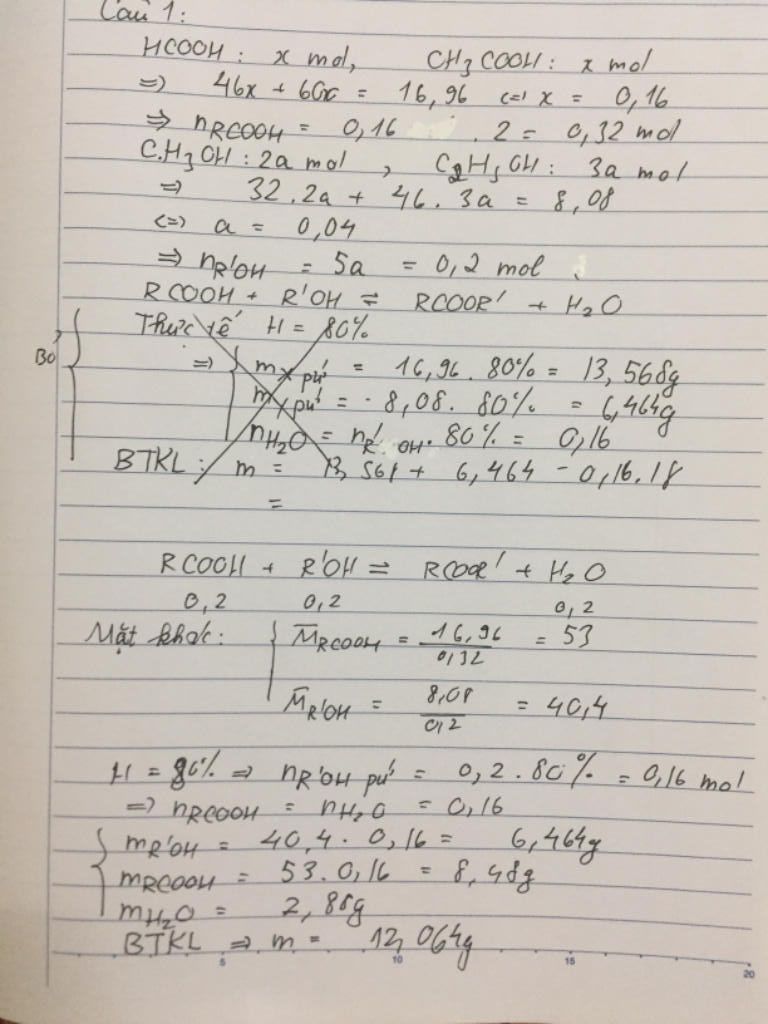 Câu 1:
HCOOH : x mol, CH3COOH : x mol
=> 46x + 60x = 16,96 <=> x = 0,16
=> nRCOOH = 0,16 . 2 = 0,32 mol
CH3OH : 2a mol , C2H5OH : 3a mol
=> 32.2a + 46.3a = 8,08
<=> a = 0,04
=> nR'OH = 5a = 0,2 mol
RCOOH + R'OH ⇌ RCOOR' + H2O
Thực tế H = 80%
Bỏ
=> mX pứ = 16,96 . 80% = 13,568g
mY pứ = 8,08 . 80% = 6,464g
nH2O = nR'OH . 80% = 0,16
BTKL : m = 13,568 + 6,464 - 0,16.18
=
RCOOH + R'OH ⇌ RCOOR' + H2O
0,2 0,2 0,2
Mặt khác: M̅RCOOH = 16,96/0,32 = 53
M̅R'OH = 8,08/0,2 = 40,4
H = 80% => nR'OH pứ = 0,2 . 80% = 0,16 mol
=> nRCOOH = nH2O = 0,16
mR'OH = 40,4 . 0,16 = 6,464g
mRCOOH = 53 . 0,16 = 8,48g
mH2O = 2,88g
BTKL => m = 12,064g
5 10 15 20